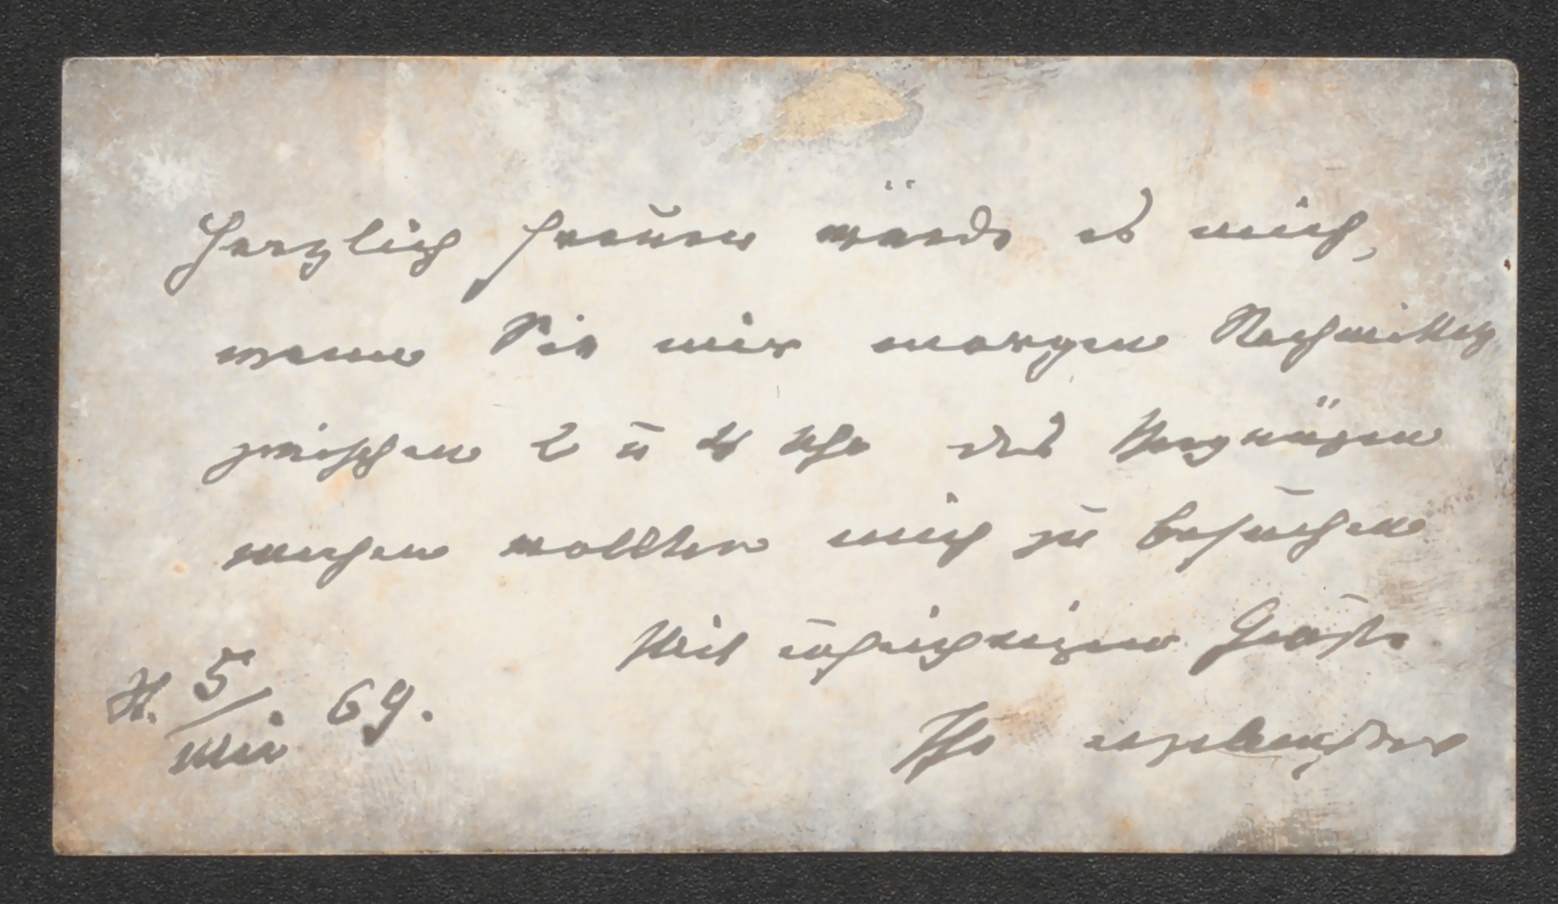 Herzlich freuen würde es mich,
wenn Sie mir morgen Nachmittag
zwischen 2 u 4 Uhr das Vergnügen
machen wollten mich zu besuchen
Mit aufrichtigem Gruße
H. 5/Mai 69.
Ihr ergebenster